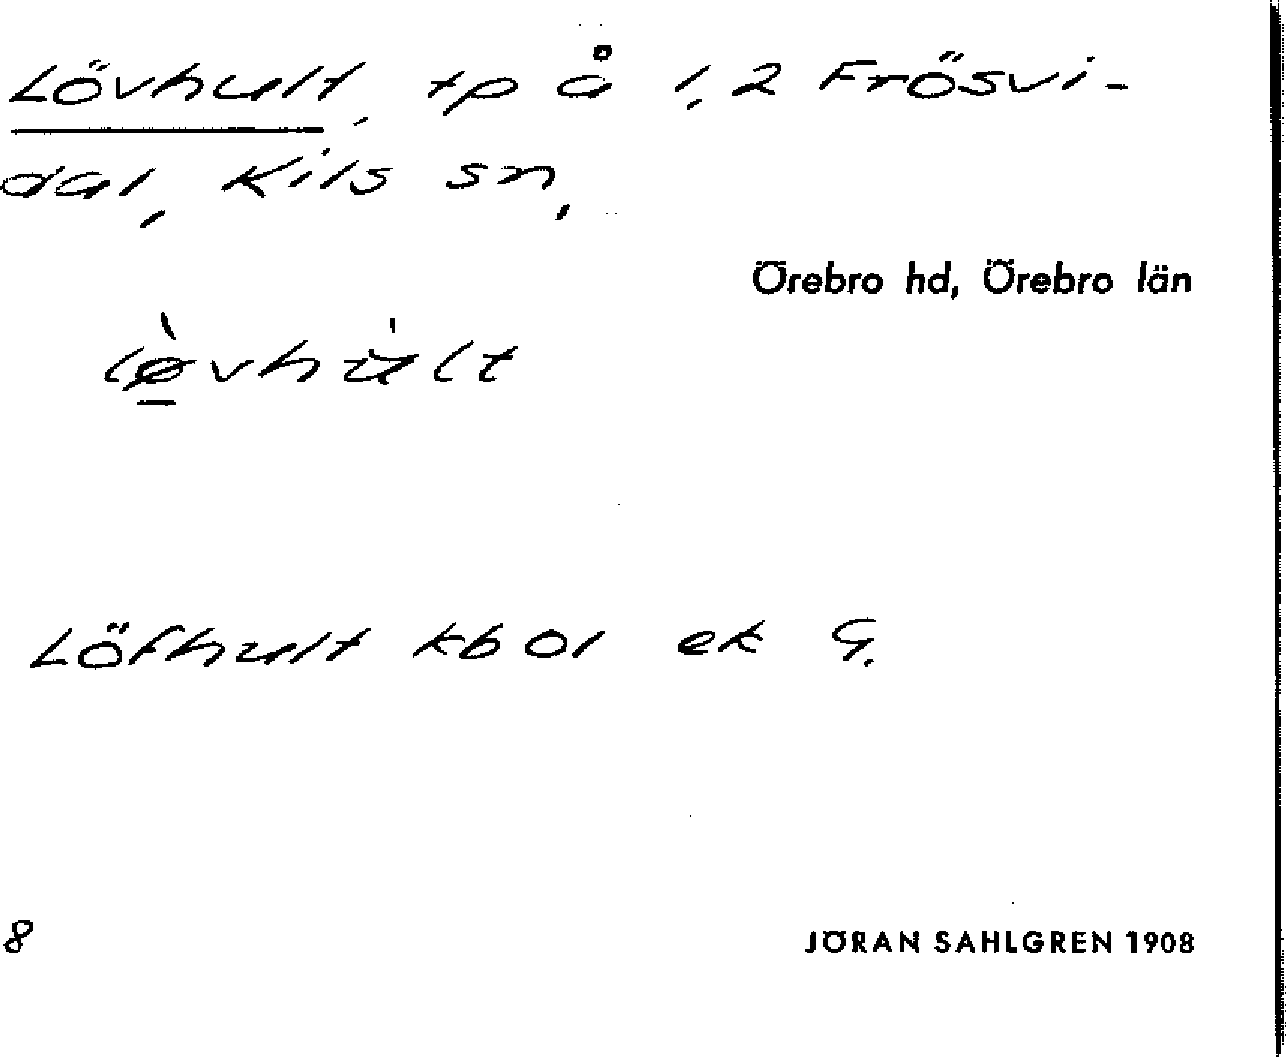 Lövhult, tp å 1,2 Frösvi-
dal, Kils sn,
Örebro hd, Örebro län
lø̠̀vhu̇lt
Löfhult kb 01 ek G.
8
JÖRAN SAHLGREN 1908